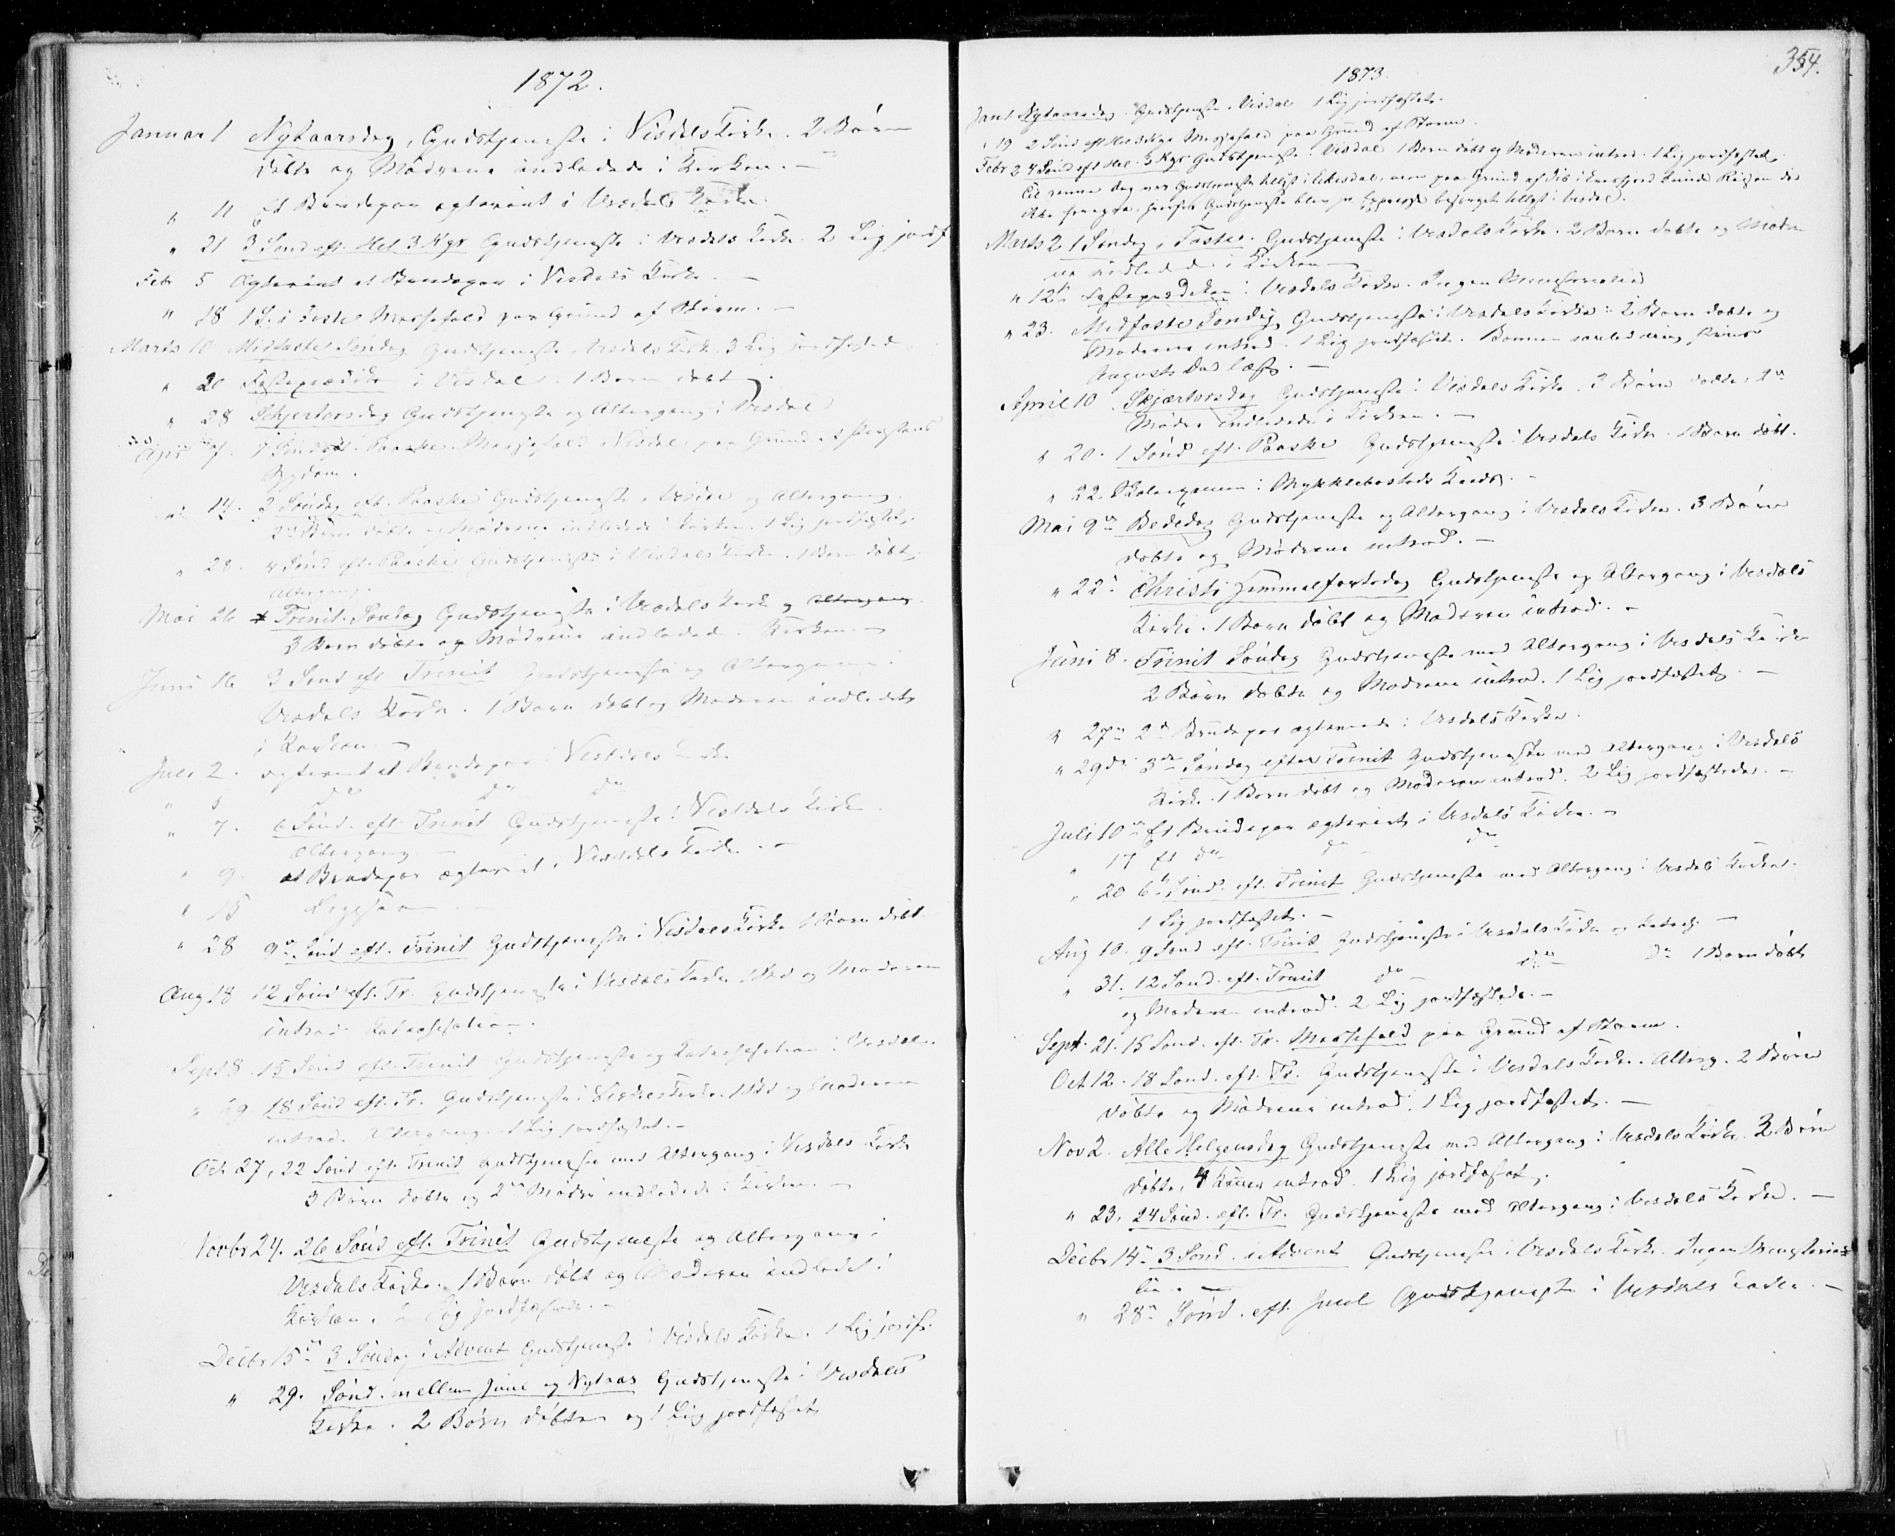 1872.
Januar 1 Nytaarsdag, Gudstjeneste i Visdals Kirke. 2 Børn
døbte og Mødrene indledede i Kirken. –
" 11 Et Brudepar ægteviet i Visdals Kirke.
" 21 3 Sønd eft. Hel. 3 Kgr Gudstjeneste i Visdals Kirke. 2 Lig jordf
Febr 5 Ægteviet et Brudepar i Visdals Kirke. –
" 18 1 S. i Faste Messefald paa Grund af Storm. –
Marts 10 Midfaste Søndag Gudstjeneste i Visdals Kirke. 3 Lig jordfæstede.
" 20 Fasteprædiken i Visdal. 1 Barn døbt.
" 28 Skjertorsdag Gudstjeneste og Altergang i Visdal
Apr 7. 1 Sønd eft. Paaske. Messefald i Visdal paa Grund af Præstens
Sygdom.
" 14. 2 Søndag eft. Paaske Gudstjeneste i Visdal og Altergang.
2 Børn døbte og Mødrene indledede i Kirken. 1 Lig jordfæstet.
" 28. 4 Sønd eft. Paaske Gudstjeneste i Visdals Kirke. 1 Barn døbt
Altergang.
Mai 26 Trinit. Søndag Gudstjeneste i Visdals Kirke og Altergang
3 Børn døbte og Mødrene indledede i Kirken. –
Juni 16 3 Sønd eft. Trinit Gudstjeneste og Altergang i
Visdals Kirke. 1 Barn døbt og Moderen indledet
i Kirken. –
Juli 2. ægteviet et Brudepar i Visdals Kirke
" do do do
" 7. 6 Sønd. eft. Trinit Gudstjeneste i Visdals Kirke.
Altergang. –
" 9. et Brudepar ægteviet i Visdals Kirke. –
" 15
" 28 9de Sønd eft. Trinit Gudstjeneste i Visdals Kirke 1 Barn døbt
Aug 18 12 Sønd eft. Tr. Gudstjeneste i Visdals Kirke. 1 Bd og Moderen
introd. Katechisation.
Sept 8. 15 Sønd eft. Trinit Gudstjeneste og Katechisation i Visdalen
" 29 18 Sønd eft. Tr. Gudstjeneste i Visdals Kirke. 1 Bd og Moderen
introd. Altergang. 1 Lig jordfæstet. –
Oct 27, 22 Sønd eft. Trinit Gudstjeneste med Altergang i Visdals Kirke
3 Børn døbte og 2 Mødre indledede i Kirken. –
Novbr 24. 26 Sønd eft. Trinit Gudstjeneste og Altergang i
Visdals Kirke. 1 Barn døbt og Moderen indledet i
Kirken. 2 Lig jordfæstede. –
Decbr 15de 3 Søndag i Advent Gudstjeneste i Visdals Kirke. 1 Lig jordf.
" 29. Sønd. mellem Juul og Nytaar Gudstjeneste i Visdals
Kirke. 2 Børn døbte og 1 Lig jordfæstet
354.
1873.
Jan 1 Nytaarsdag. Gudstjeneste i Visdal 1 Lig jordfæstet.
" 19 2 Sønd eft Hel 3 Kgr Messefald paa Grund af Storm.
Febr 2 4 Sønd eft Hel. 3 Kgr Gudstjeneste i Visdal 1 Barn døbt og Moderen introd. 1 Lig jordfæstet.
Til denne Dag var Gudstjeneste tillyst i Eikesdal, men paa Grund af Iis i Eirisfjord kunde Reisen did
ikke foregaa, hvorfor Gudstjeneste blev pr Expresse besørget tillyst i Visdal.
Marts 2 1 Søndag i Faste. Gudstjeneste i Visdals Kirke. 2 Børn døbte og Mødre
ne indledede i Kirken –
" 12te Fasteprædiken i Visdals Kirke. Ingen Ministerialia
" 23. Midfaste Søndag Gudstjeneste i Visdals Kirke. 2 Børn døbte og
Moderne introd. 1 Lig jordfæstet. Bønnen anledning Prins
Augusts Død læst. –
April 10. Skjærtorsdag Gudstjeneste i Visdals Kirke. 3 Børn døbte, 2
Mødre indledede i Kirken. –
" 20. 1 Sønd eft. Paaske Gudstjeneste i Visdals Kirke. 1 Barn døbt.
" 22. Skoleexamen i Myklebostads Kreds. –
Mai 9de Bededag Gudstjeneste og Altergang i Visdals Kirke. 3 Børn
døbte og Mødrene introd. –
" 22. Christi Himmelfartsdag Gudstjeneste og Altergang i Visdals
Kirke. 1 Barn døbt og Moderen introd. –
Juni 8. Trinit Søndag Gudstjeneste med Altergang i Visdals Kirke
2 Børn døbte og Mødrene introd. 1 Lig jordfæstet. –
" 27de 2 Brudepar ægteviede i Visdals Kirke.
" 29de 3die Søndag efter Trinit Gudstjeneste med Altergang i Visdals
Kirke. 1 Barn døbt og Moderen introd. 2 Lig jordfæstede. –
Juli 10de Et Brudepar ægteviet i Visdals Kirke. –
" 17 Et do do do
" 20 6te Sønd. eft. Trinit Gudstjeneste med Altergang i Visdals Kirke.
1 Lig jordfæstet. –
Aug 10. 9 Sønd eft. Trinit Gudstjeneste i Visdals Kirke og Katech –
" 31. 12 Sønd. eft. Trinit do do do 1 Barn døbt
og Moderen introd. 2 Lig jordfæstede. –
Sept. 21. 15 Sønd. eft. Tr. Messefald paa Grund af Storm.
Oct 12. 18 Sønd. eft. Tr. Gudstjeneste i Visdals Kirke. Alterg. 2 Børn
døbte og Mødrene introd. 1 Lig jordfæstet. –
Nov 2. Alle Helgensdag Gudstjeneste med Altergang i Visdals Kirke. 3 Børn
døbte, 4 Koner introd. 1 Lig jordfæstet.
" 23, 24 Sønd. eft. Tr. Gudstjeneste med Altergang i Visdals Kirke. –
Decbr 14de 3 Sønd. i Advent Gudstjeneste i Visdals Kirke. Ingen Ministeria
lia. –
" 28de Sønd. eft Juul Gudstjeneste i Visdals Kirke. –